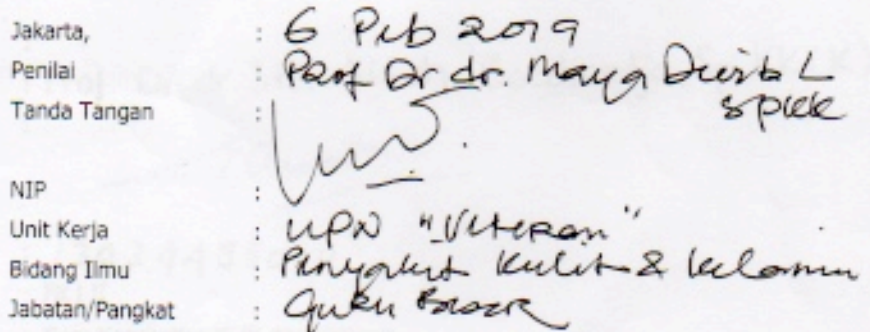 Jakarta, : 6 Peb 2019
Penilai : Prof Dr. dr. Maya Dewita L
SpKK
Tanda Tangan :
NIP :
Unit Kerja : UPN "Veteran"
Bidang Ilmu : Penyakit Kulit & Kelamin
Jabatan/Pangkat : Guru Besar